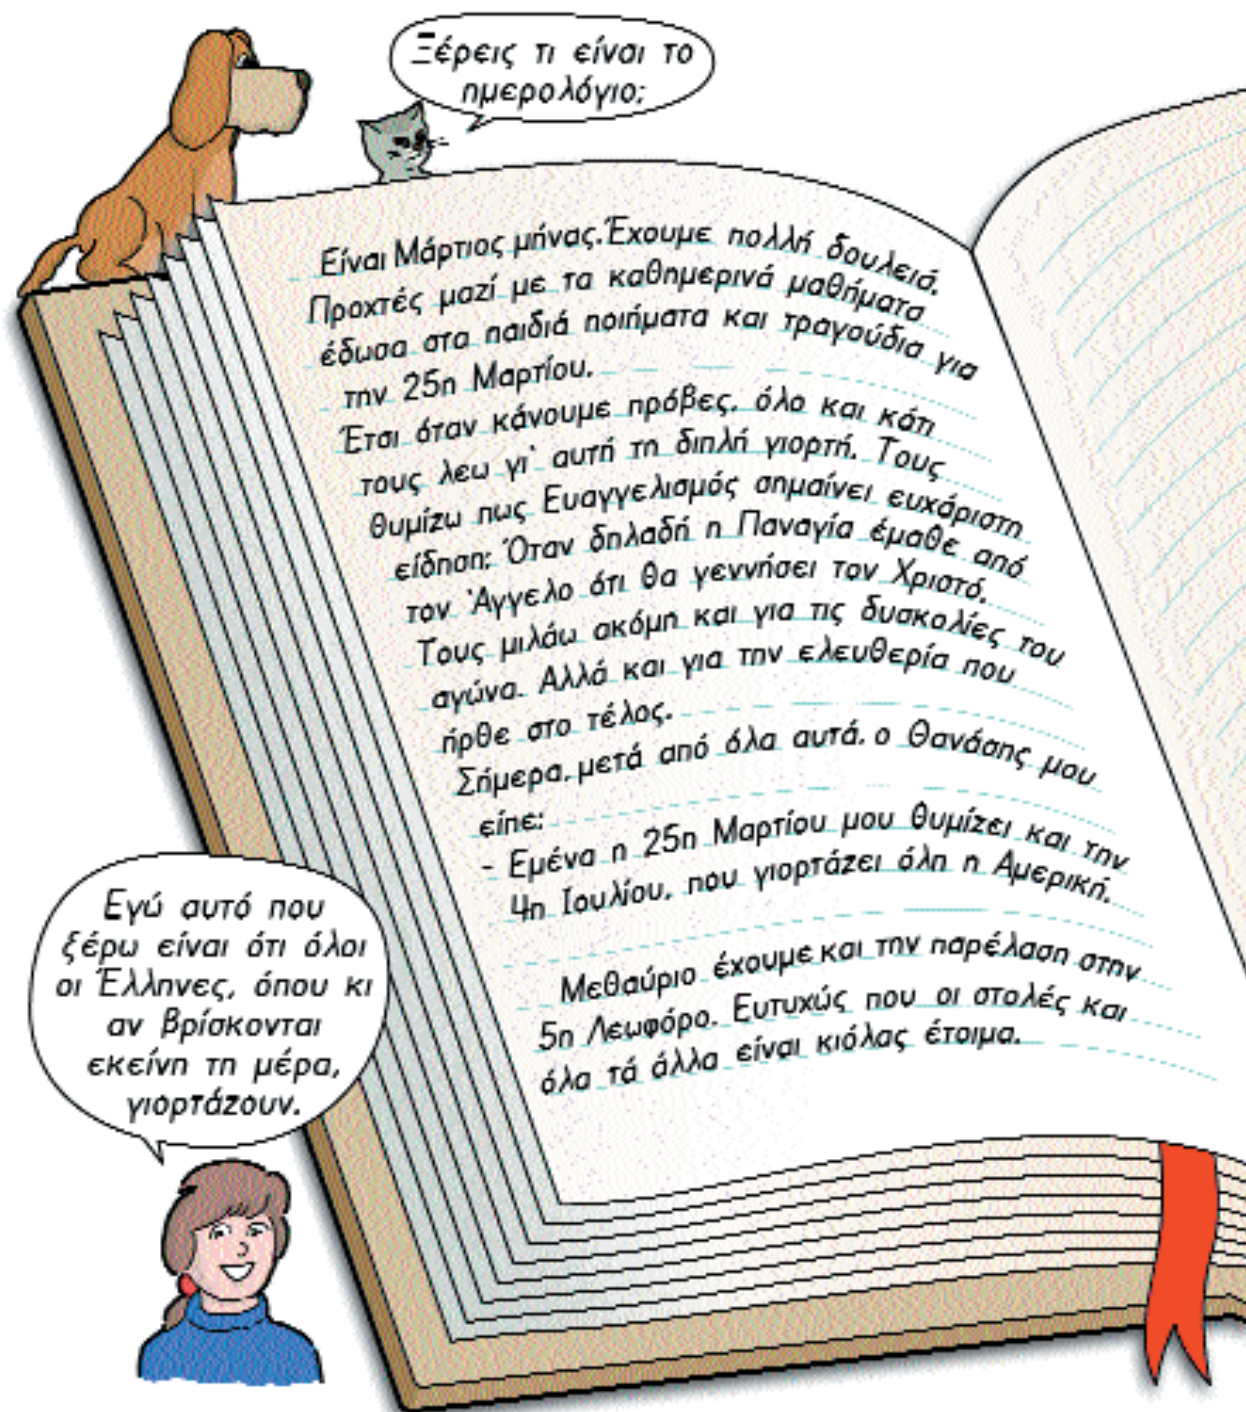 Ξέρεις τι είναι το
ημερολόγιο;
Είναι Μάρτιος μήνας. Έχουμε πολλή δουλειά.
Προχτές μαζί με τα καθημερινά μαθήματα
έδωσα στα παιδιά ποιήματα και τραγούδια για
την 25η Μαρτίου.
Έτσι όταν κάνουμε πρόβες, όλο και κάτι
τους λεω γι' αυτή τη διπλή γιορτή. Τους
θυμίζω πως Ευαγγελισμός σημαίνει ευχάριστη
είδηση: Όταν δηλαδή η Παναγία έμαθε από
τον Άγγελο ότι θα γεννήσει τον Χριστό.
Τους μιλάω ακόμη και για τις δυσκολίες του
αγώνα. Αλλά και για την ελευθερία που
ήρθε στο τέλος.
Σήμερα, μετά από όλα αυτά, ο Θανάσης μου
είπε:
- Εμένα η 25η Μαρτίου μου θυμίζει και την
4η Ιουλίου, που γιορτάζει όλη η Αμερική.
Μεθαύριο έχουμε και την παρέλαση στην
5η Λεωφόρο. Ευτυχώς που οι στολές και
όλα τά άλλα είναι κιόλας έτοιμα.
Εγώ αυτό που
ξέρω είναι ότι όλοι
οι Έλληνες, όπου κι
αν βρίσκονται
εκείνη τη μέρα,
γιορτάζουν.